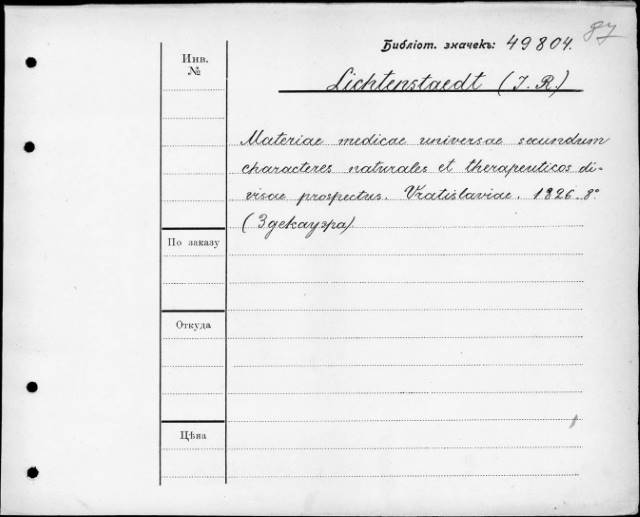 87
Библіот. значекъ: 49804.
Инв.
№
Lichtenstaedt (J. R.)
Materiae medicae universae secundum
characteres naturales et therapeuticos di-
visae prospectus. Vratislaviae. 1826. 8°
(Здекауэра)
По заказу
Откуда
Цѣна